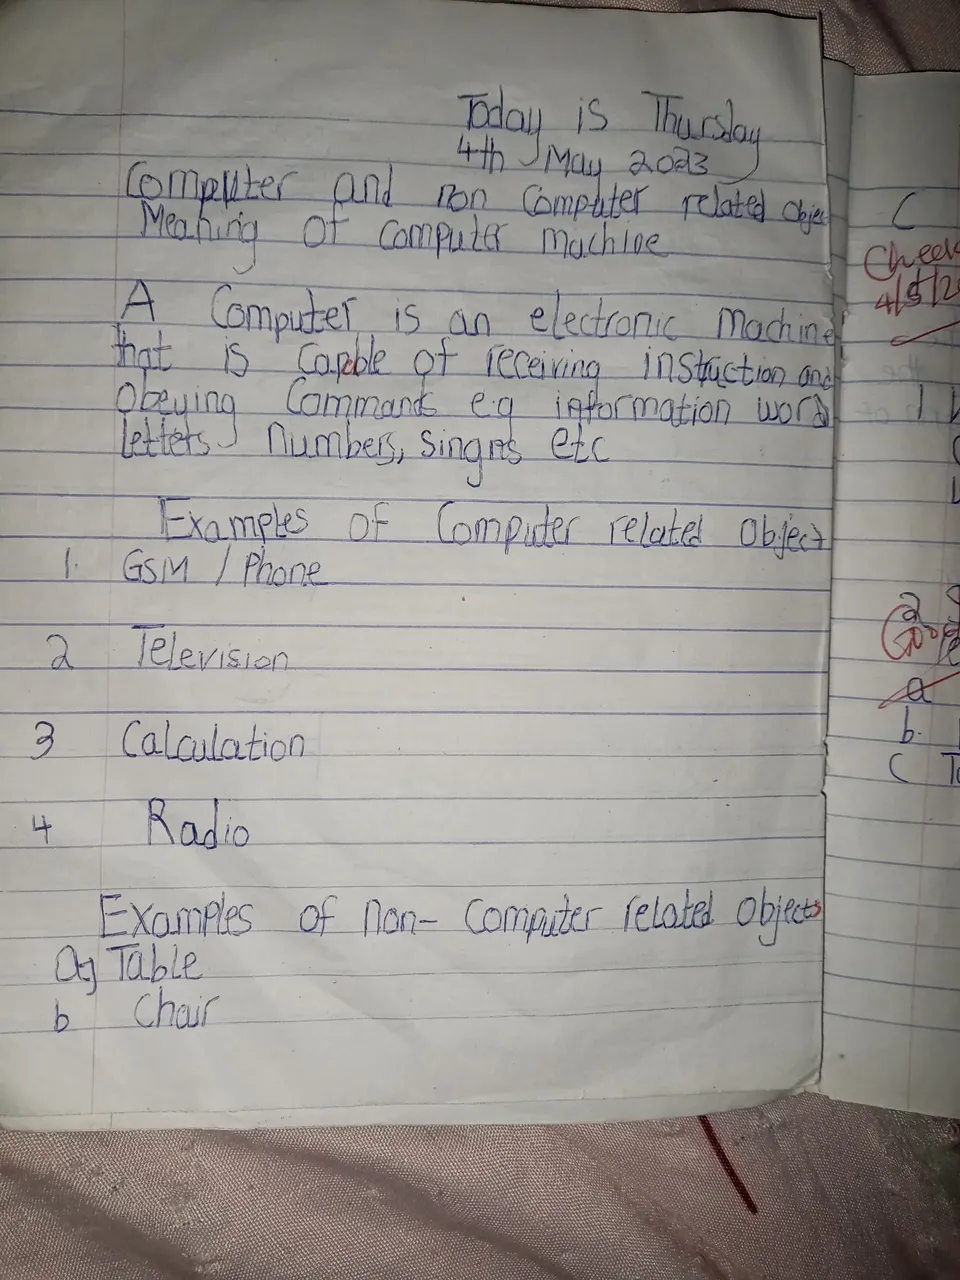 Today is Thursday
4th May 2023
Computer and non Computer related objec
Meaning of computer machine
A Computer is an electronic machine
that is capable of receiving instruction and
obeying Commands e.g information word
letters numbers, singns etc
Examples of Computer related object
1. GSM / Phone
2 Television
3 Calculation
4 Radio
Examples of non- Computer related objects
a) Table
b Chair
C
Check
4/5/2
1
2
a
b.
C